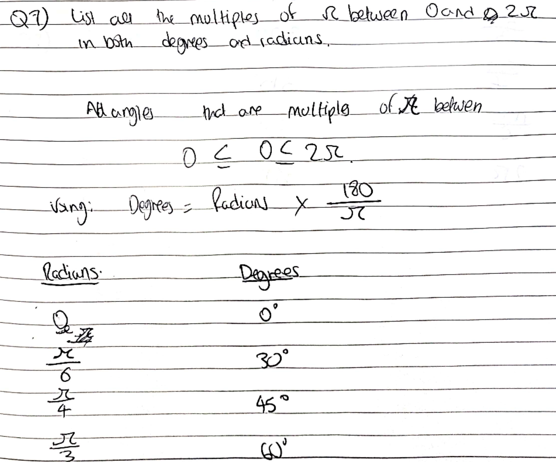 Q7) List all the multiples of π between 0 and 2π
in both degrees and radians.
All angles that are multiples of π between
0 ≤ θ ≤ 2π.
Using: Degrees = Radians × 180/π
Radians. Degrees
0 0°
π/6 30°
π/4 45°
π/3 60°